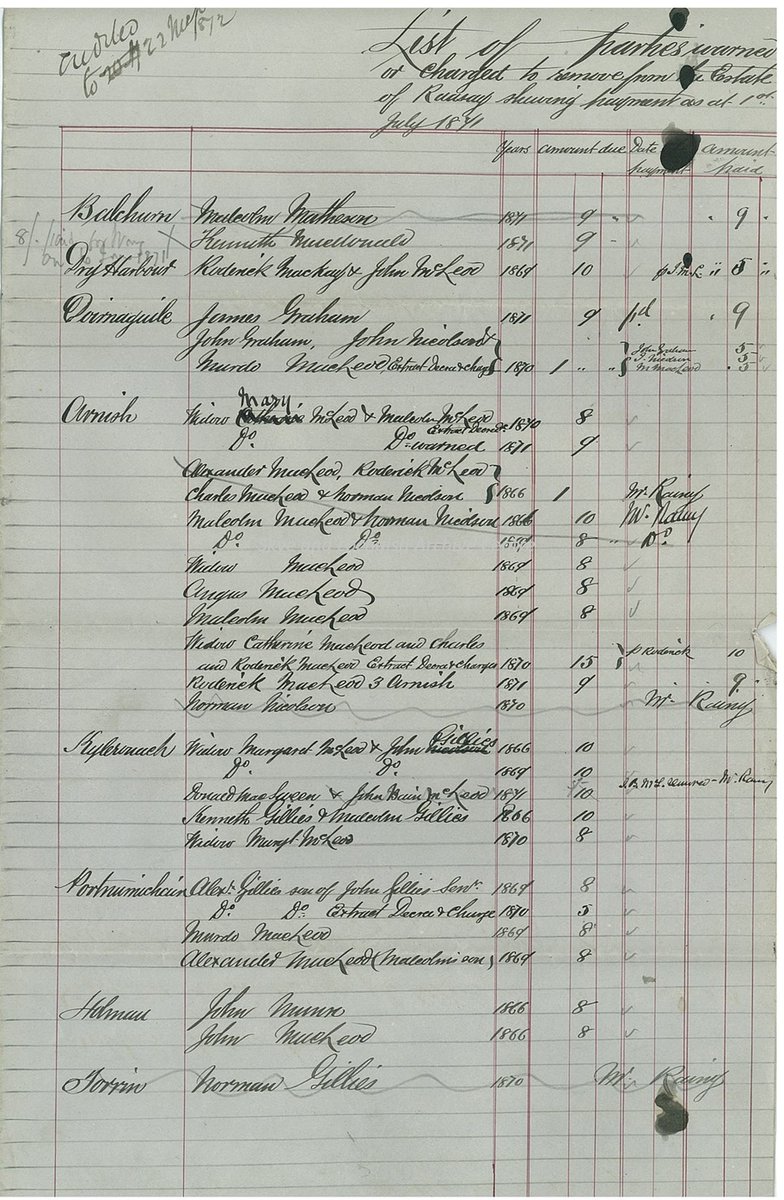 Credited
to 22 May 1872
List of parties warned
or charged to remove from the Estate
of Raasay shewing payment as at 1st
July 1871
Years amount due Date payment amount paid
Balchurn Malcolm Matheson 1871 9 " " 9 "
Kenneth MacDonald 1871 9 -
8/- paid
Dry Harbour Roderick Mackay & John McLeod 1869 10 p J McL " 5 "
Doirnaguile James Graham 1871 9 pd " 9
John Graham, John Nicolson &
Murdo MacLeod, Extract Decree & Charge 1870 1 " " John Graham 5
J. Nicolson 5
M MacLeod 5
Arnish Widow Mary McLeod & Malcolm McLeod
Extract Decree 1870 8
Do Do warned 1871 9
Alexander MacLeod, Roderick McLeod
Charles MacLeod & Norman Nicolson 1866 1 Mr Rainy
Malcolm MacLeod & Norman Nicolson 1866 10 Mr. Rainy
Do Do 8 " Do
Widow MacLeod 1869 8
Angus MacLeod 1869 8
Malcolm MacLeod 1869 8
Widow Catherine MacLeod and Charles
and Roderick MacLeod Extract Decree & Charge 1870 15 p Roderick 10
Roderick MacLeod 3 Arnish 1871 9 9
Norman Nicolson 1870 Mr Rainy
Kyleronach Widow Margaret McLeod & John Gillies 1866 10
Do Do 1869 10
Donald MacSween & John Bain McLeod 1871 10 Mr. Rainy
Kenneth Gillies & Malcolm Gillies 1866 10
Widow Margt McLeod 1870 8
Portnumichain Alexr. Gillies son of John Gillies Senr. 1869 8
Do. Do. Extract Decree & Charge 1870 5
Murdo MacLeod 1869 8
Alexander MacLeod (Malcolm's son) 1869 8
Holman John Munn 1866 8
John MacLeod 1866 8
Torrin Norman Gillies 1870 Mr. Rainy